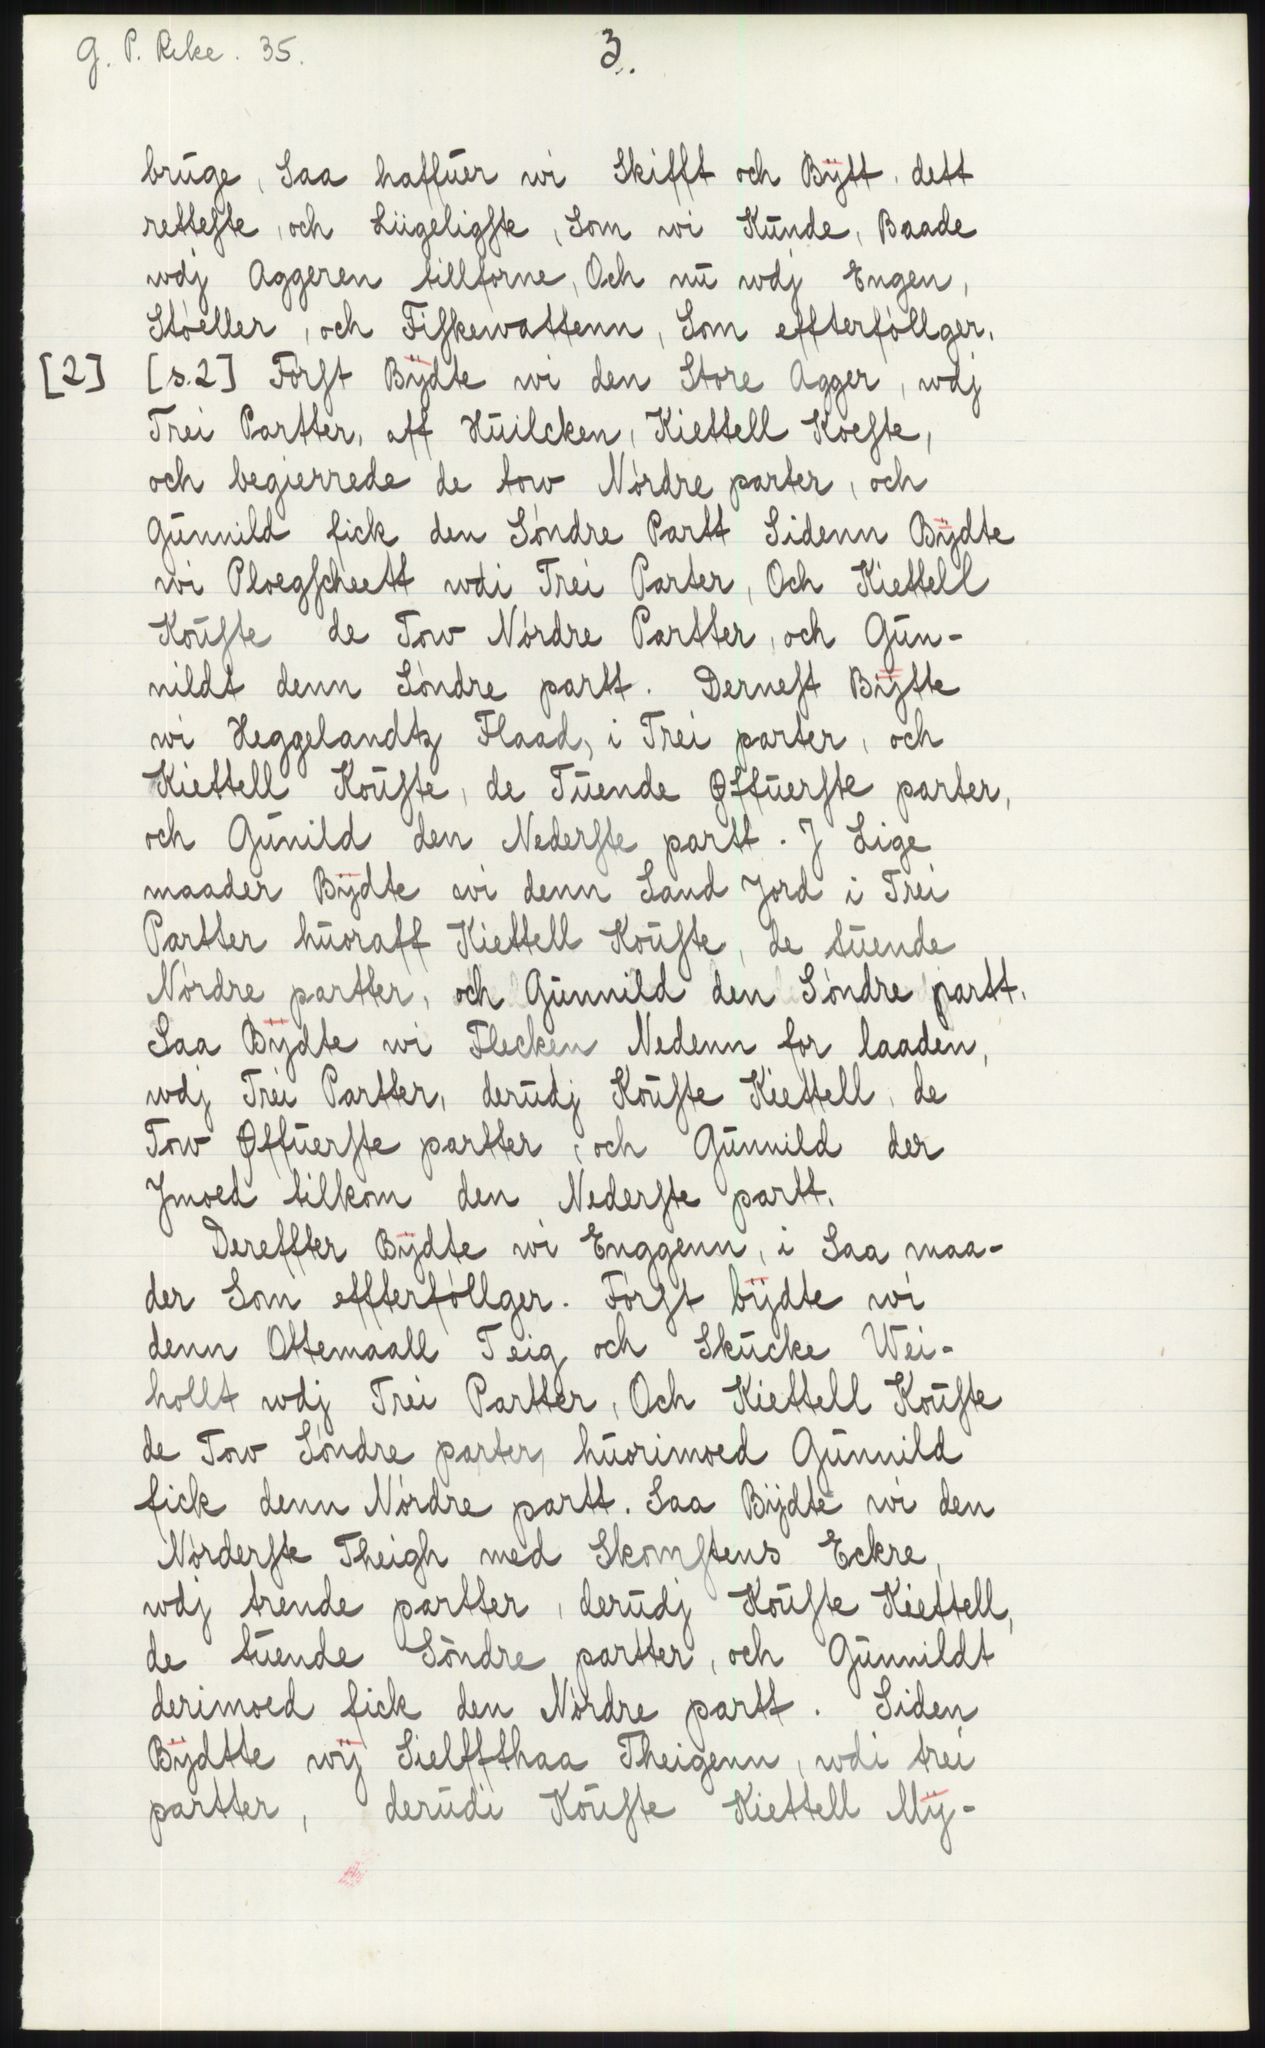 G. P. Rike. 35.
3.
bruge, Saa haffuer wi Skifft och Bÿtt. dett
retteste, och Liigeligste, Som wi Kunde, Baade
wdj Aggeren tillforne, Och nu wdj Engen,
Stóeller, och Fiskewattenn, Som effterföllger.
[2] [s.2] Först Bÿdte wi den Store Agger, wdj
Trei Partter, aff Huilcken, Kiettell Koeste,
och begierrede de tow Nórdre parter, och
Gunnild fick den Sóndre Partt Sidenn Bÿdte
wi Ploegscheett wdi Trei Parter, Och Kiettell
Kouste de Tow Nórdre Partter, och Gun-
nildt denn Sóndre partt. Dernest Bÿtte
wi Heggelandtz Flaad, i Trei parter, och
Kiettell Kouste, de Tuende Øffuerste parter,
och Gunild den Nederste partt. J Lige
maader Bÿdte wi denn Sand Jord i Trei
Partter huoraff Kiettell Kouste, de tuende
Nórdre partter, och Gunnild den Sóndre partt.
Saa Bÿdte wi Flecken Nedenn for laaden,
wdj Trei Partter, derudj Kouste Kiettell, de
Tow Øffuerste partter, och Gunnild der
Jmoed tilkom den Nederste partt.
Dereffter Bÿdte wi Enggenn, i Saa maa-
der Som effterföllger. Fórst bÿdte wi
denn Ottemaall Teig och Skucke Wei-
hollt wdj Trei Partter, Och Kiettell Kouste
de Tow Sóndre parter, huorimoed Gunnild
fick denn Nórdre partt. Saa Bÿdte wi den
Nórderste Theigh med Skomstens Eckre,
wdj trende partter, derudj Kouste Kiettell,
de tuende Söndre partter, och Gunnildt
derimoed fick den Nórdre partt. Siden
Bÿdtte wÿ Sielffthaa Theigenn, wdi trei
partter, derudi Kouste Kiettell Mÿ-